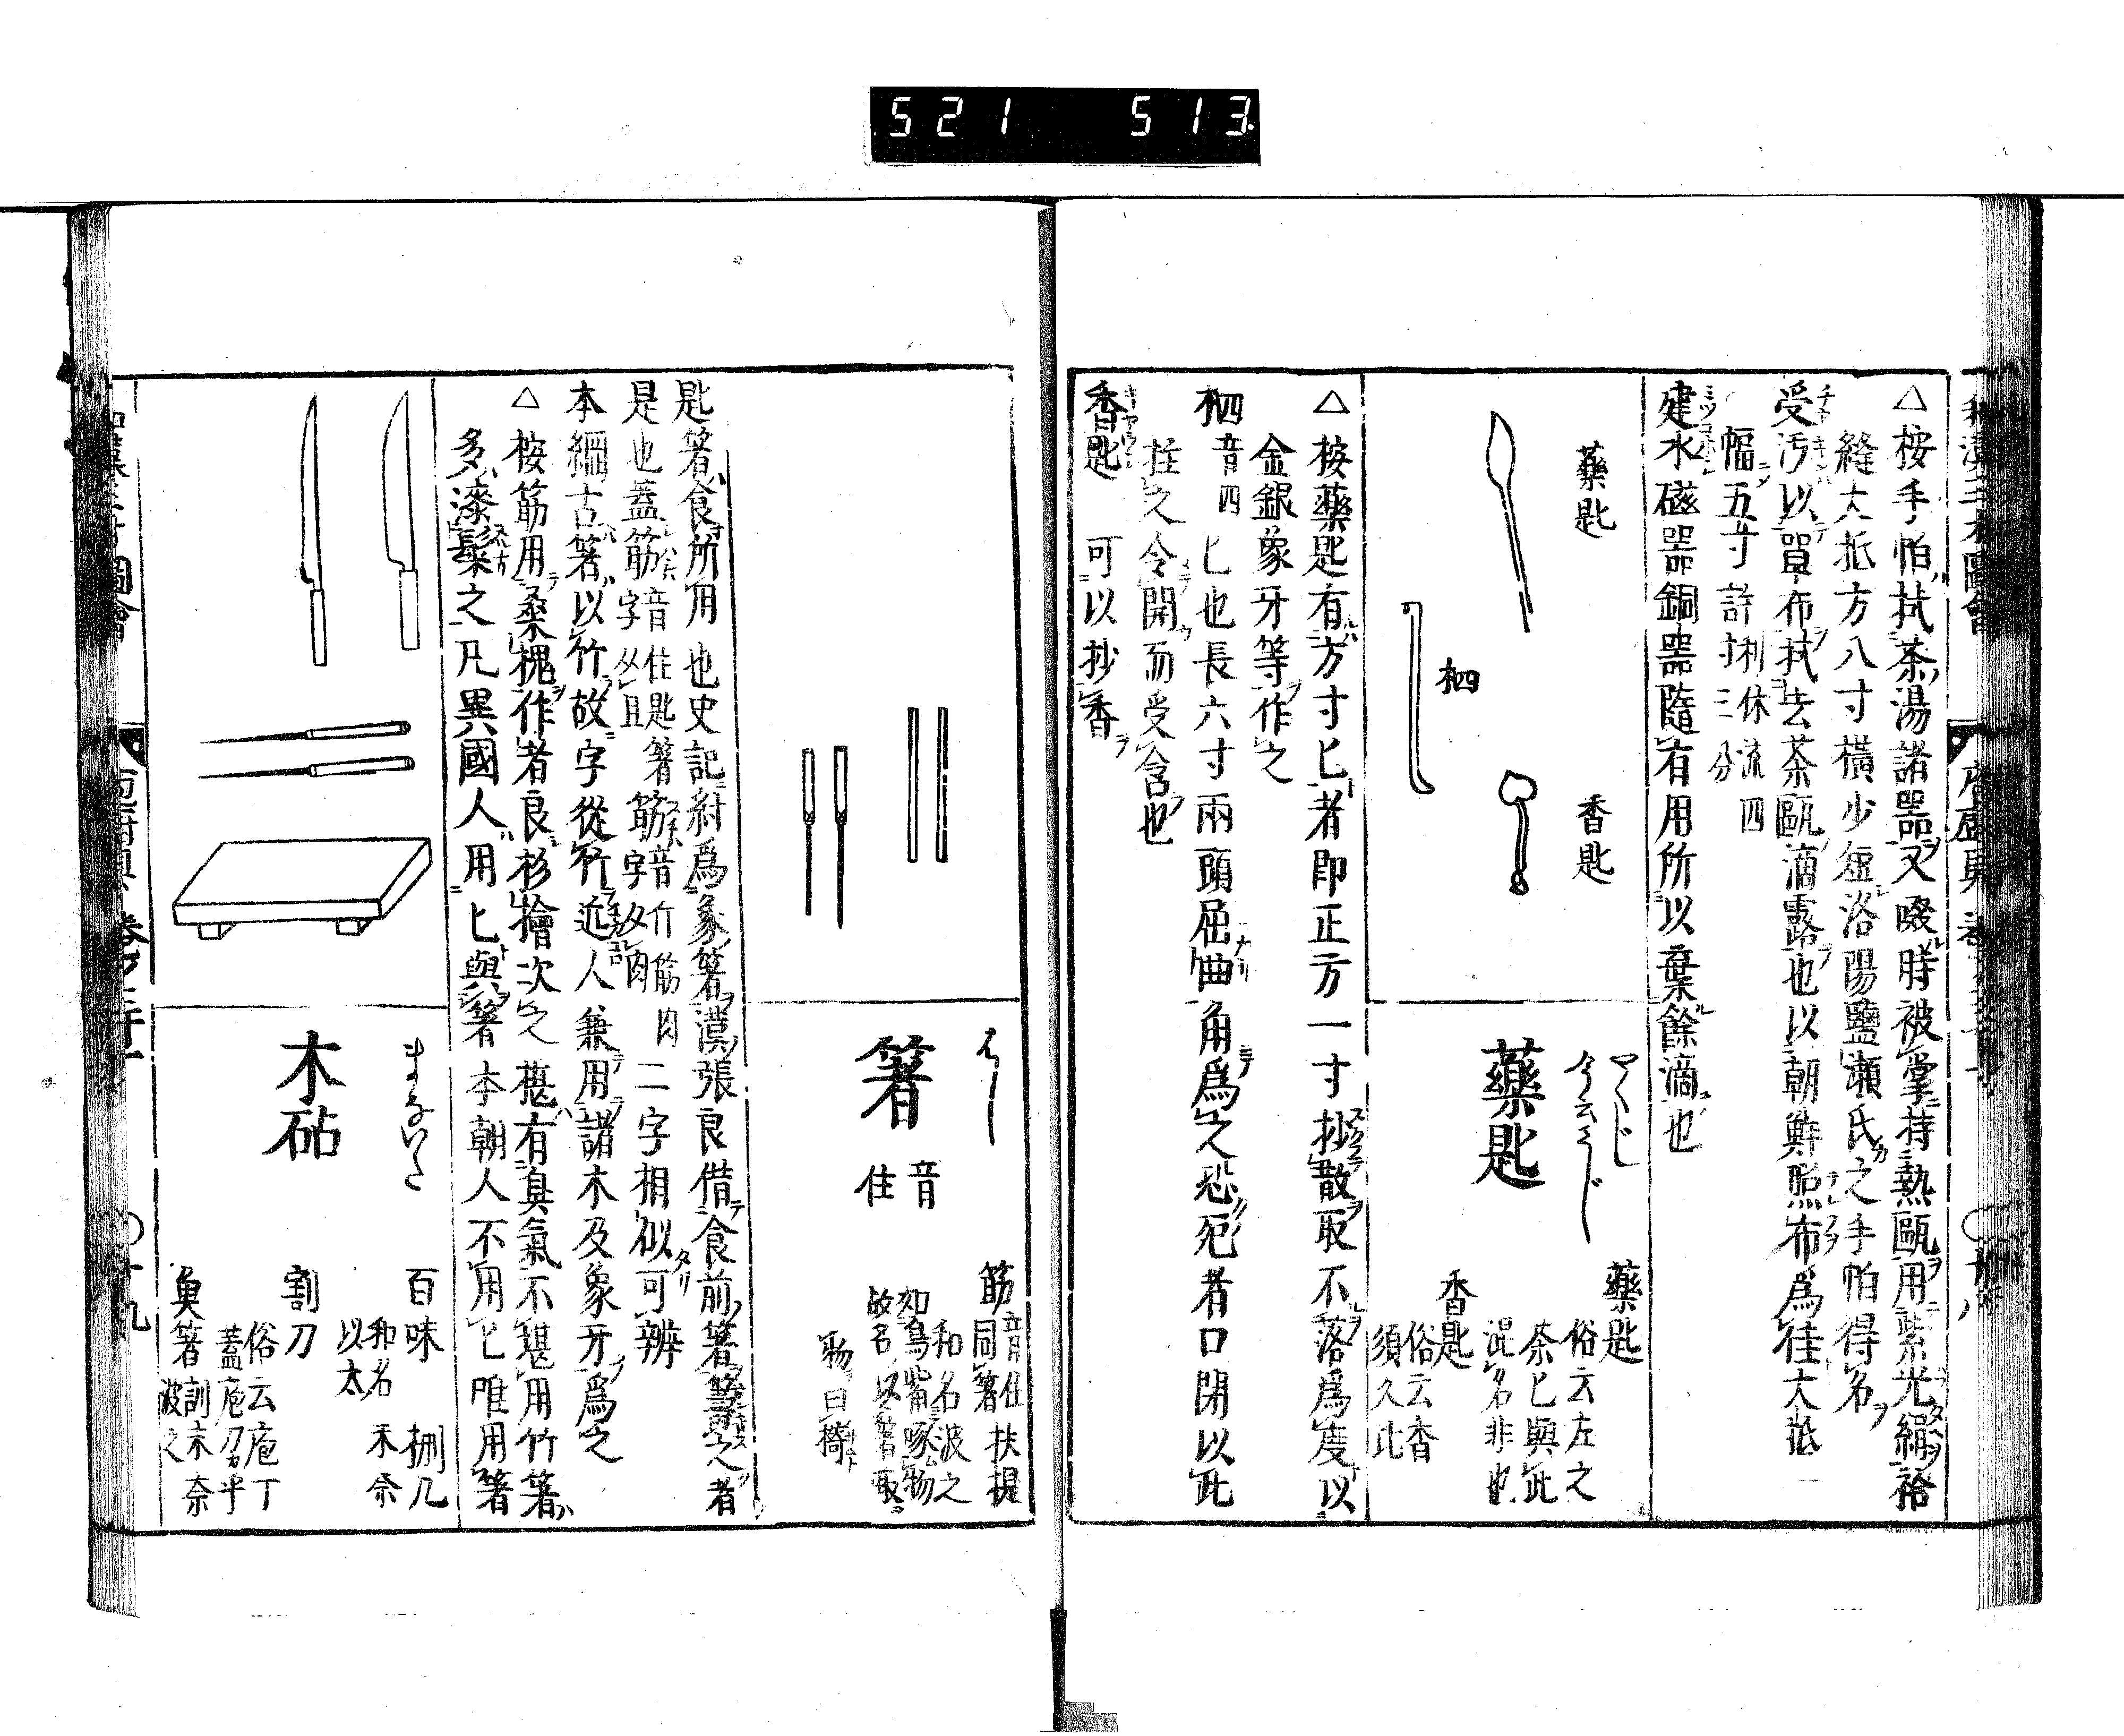 521 513
△桉手帕拭茶湯諸器又啜時被掌持熱甌用紫光絹袷
縫大抵方八寸橫少短洛陽鹽瀬氏之手帕得名
受汚以買布拭去茶甌滴露也以朝鮮照布爲佳大抵
幅五寸許利休流四寸三分
建水磁器銅器隨有用所以棄餘滴也
藥匙
香匙
柶
やくし
今云さじ
藥匙
藥匙
俗云左之
奈匕與此
混名非也
香匙
俗云香
須久此
△桉藥匙有方寸匕者即正方一寸抄散取不落爲度以
金銀象牙等作之
柶音四匕也長六寸兩頭屈曲角爲之恐死者口閉以此
拄之令開而受含也
香匙 可以抄香
はし
箸
音
住
筯音住
同箸
扶提
和名波之
如鳥觜啄物
故名以箸取
物曰𢳇
匙箸食所用也史記紂爲象箸漢張良借食前箸籌之者
是也蓋筯音住匙箸筯音斤筋肉二字相似可辨
本綱古箸以竹故字從竹近人兼用諸木及象牙爲之
△桉筯用桑槐作者良杉檜次之榧有臭氣不堪用竹箸
多漆髹之凡異國人用匕與箸本朝人不用匕唯用箸
まないた
木砧
百味 棚几
和名 末奈
以太
割刀
俗云庖丁
蓋庖刀乎
魚箸訓末奈
波之